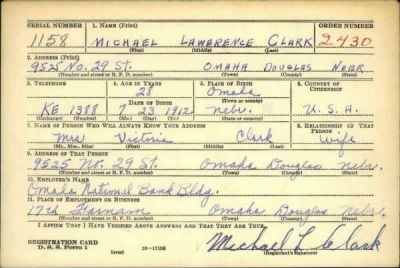 SERIAL NUMBER 1. NAME (Print) ORDER NUMBER
1158 MICHAEL LAWERENCE CLARK 2430
(First) (Middle) (Last)
2. ADDRESS (Print)
9525 NO. 29 ST. OMAHA DOUGLAS NEBR
(Number and street or R. F. D. number) (Town) (County) (State)
3. TELEPHONE 4. AGE IN YEARS 5. PLACE OF BIRTH 6. COUNTRY OF CITIZENSHIP
28 Omaha
DATE OF BIRTH (Town or county)
KE 1388 7 23 1912 Nebr. U. S. A.
(Exchange) (Number) (Mo.) (Day) (Yr.) (State or country)
7. NAME OF PERSON WHO WILL ALWAYS KNOW YOUR ADDRESS 8. RELATIONSHIP OF THAT PERSON
Mrs Victoria Clark wife
(Mr., Mrs., Miss) (First) (Middle) (Last)
9. ADDRESS OF THAT PERSON
9525 No. 29 St. Omaha Douglas Nebr.
(Number and street or R. F. D. number) (Town) (County) (State)
10. EMPLOYER'S NAME
Omaha National Bank Bldg.
11. PLACE OF EMPLOYMENT OR BUSINESS
17th Farnam Omaha Douglas Nebr.
(Number and street or R. F. D. number) (Town) (County) (State)
I AFFIRM THAT I HAVE VERIFIED ABOVE ANSWERS AND THAT THEY ARE TRUE.
REGISTRATION CARD
D. S. S. Form 1 (over) 16-17105 Michael L Clark
(Registrant's signature)